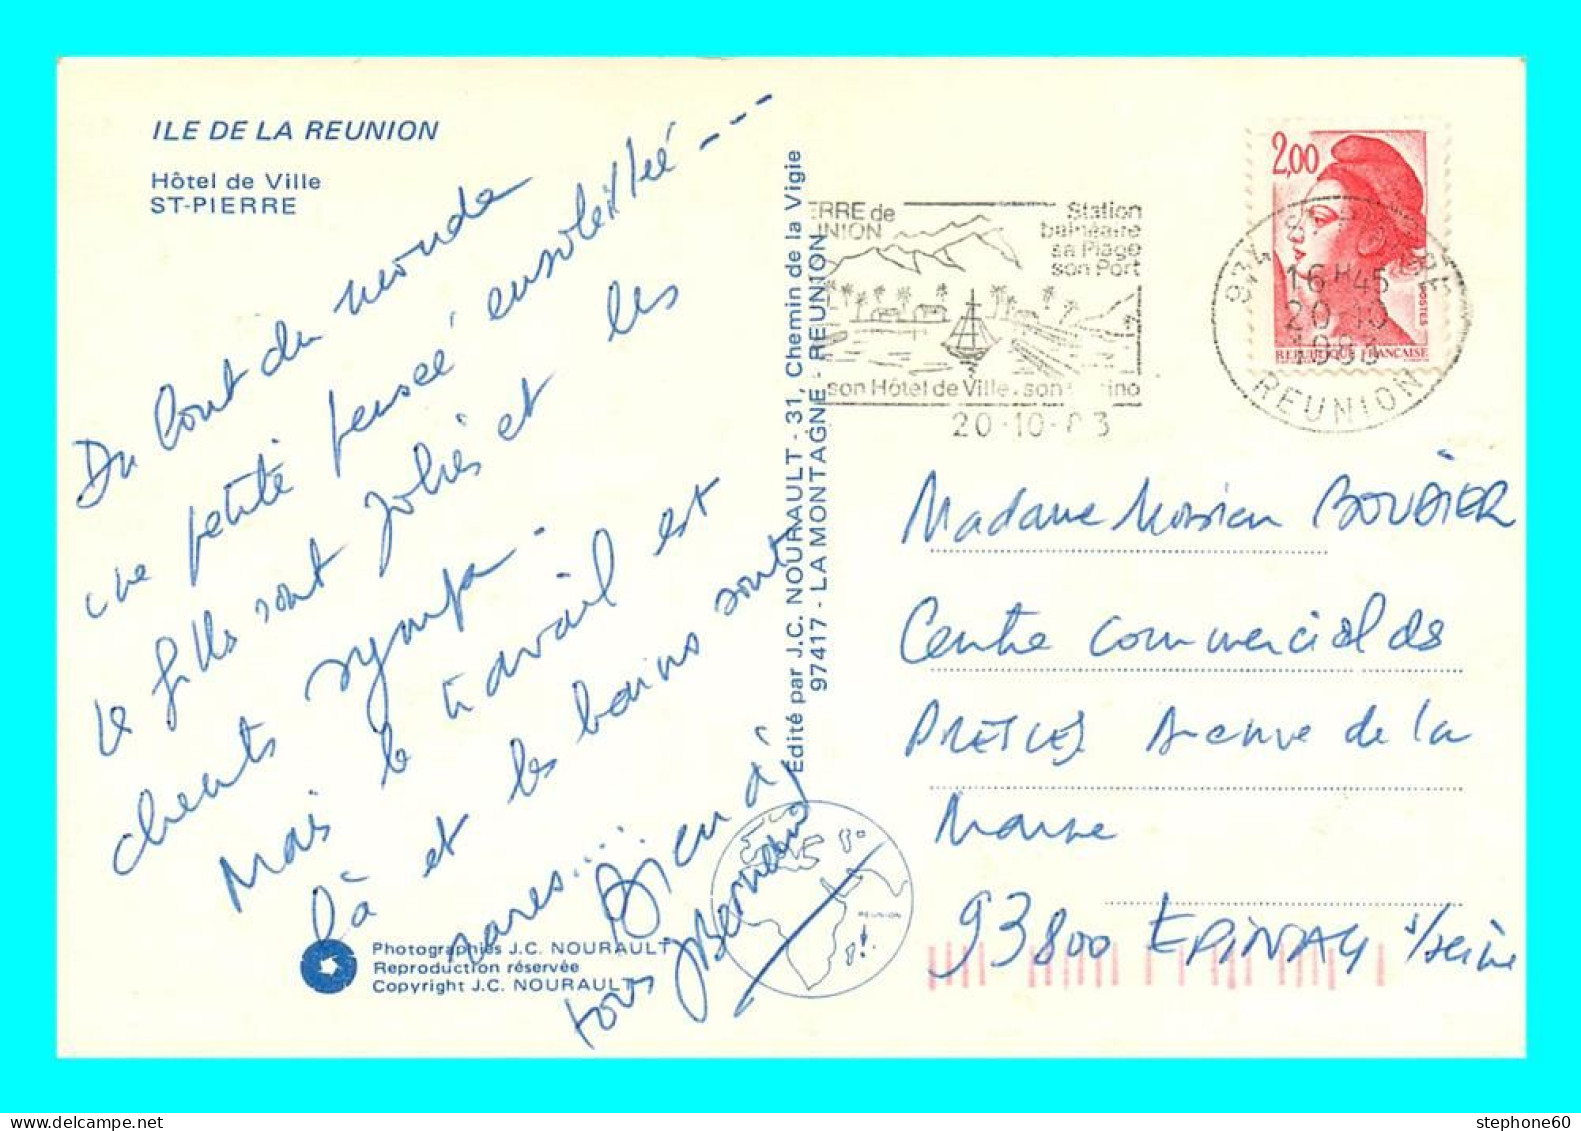 ILE DE LA REUNION
Hôtel de Ville
ST-PIERRE
Du bout du monde
une petite pensée ensoleillée ---
les filles sont jolies et les
clients sympa.
Mais le travail est
là et les bains sont
rares....
Bien à
tous JBernard
Photographies J.C. NOURAULT
Reproduction réservée
Copyright J.C. NOURAULT
Édité par J.C. NOURAULT - 31, Chemin de la Vigie
97417 - LA MONTAGNE - REUNION
REUNION
ERRE de
UNION
Station
balnéaire
sa Plage
son Port
son Hôtel de Ville. son ino
20-10-83
2,00
POSTES
REPUBLIQUE FRANCAISE
974 ST PIERRE
16H45
20-10
1983
REUNION
Madame Monsieur
Centre commercial des
PRESLES Avenue de la
Marne
93800 EPINAY s/seine
stephone60